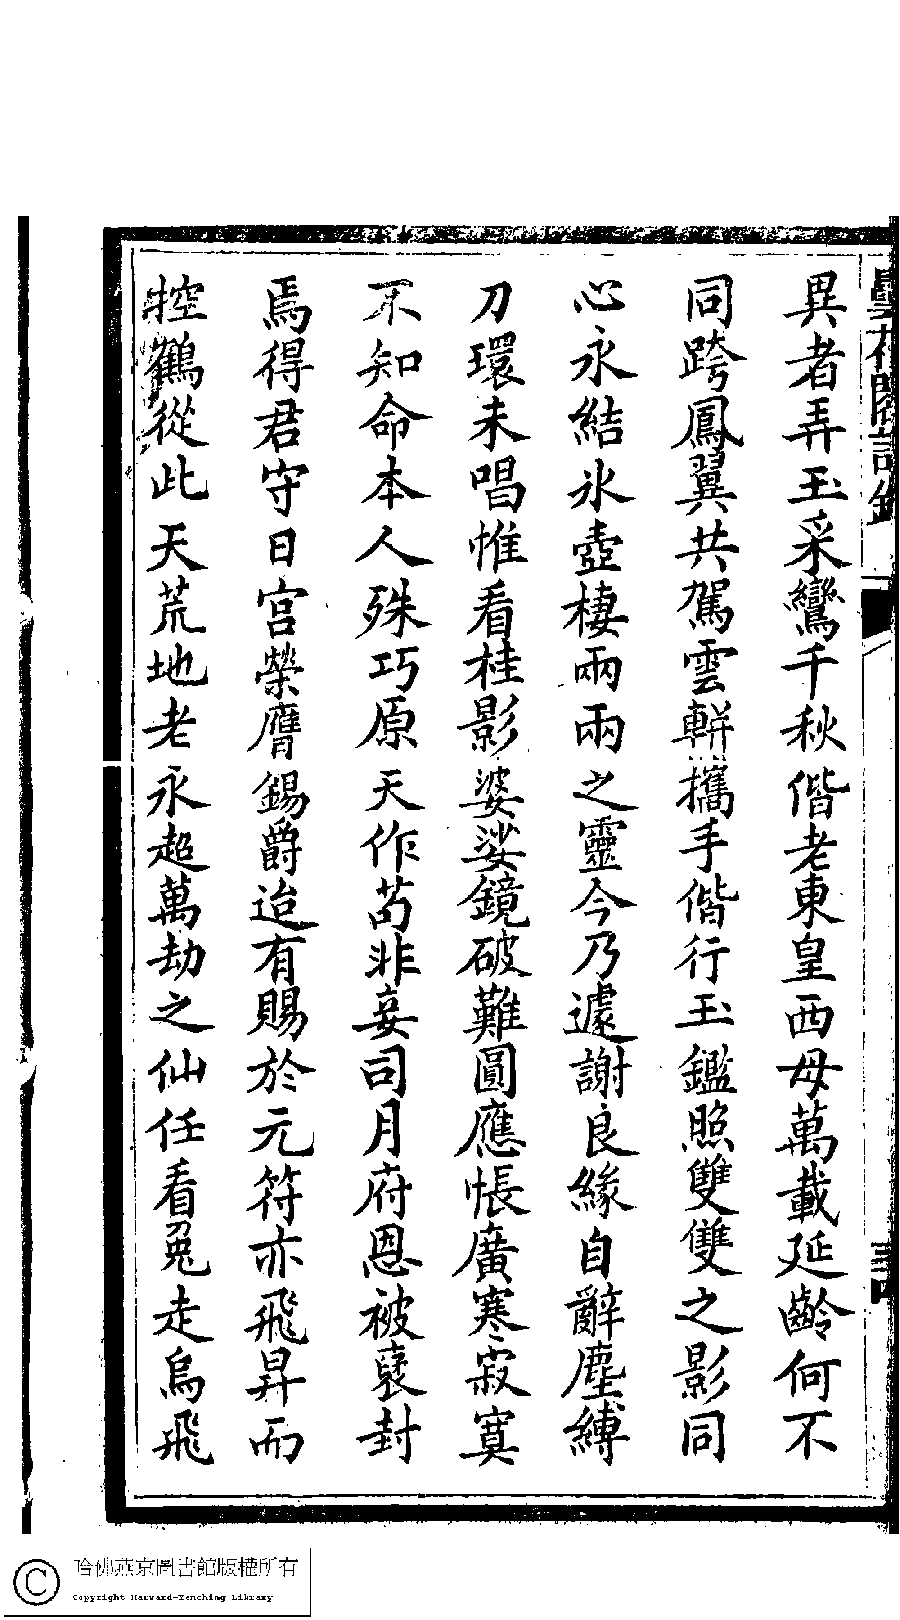 曇花閣詩鈔
三四
異者弄玉采鸞千秋偕老東皇西母萬載延齡何不
同跨鳳翼共駕雲軿攜手偕行玉鑑照雙雙之影同
心永結氷壺棲兩兩之靈今乃遽謝良緣自辭塵縛
刀環未唱惟看桂影婆娑鏡破難圓應悵廣寒寂寞
不知命本人殊巧原天作苟非妾司月府恩被褒封
焉得君守日宮榮膺錫爵迨有賜於元符亦飛昇而
控鶴從此天荒地老永超萬劫之仙任看兔走烏飛
哈佛燕京圖書館版權所有
Copyright Harvard-Yenching Library